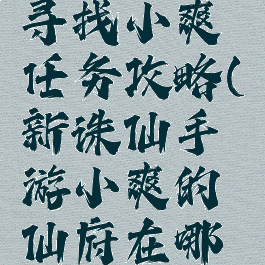 寻找小爽
任务攻略(
新诛仙手
游小爽的
仙府在哪